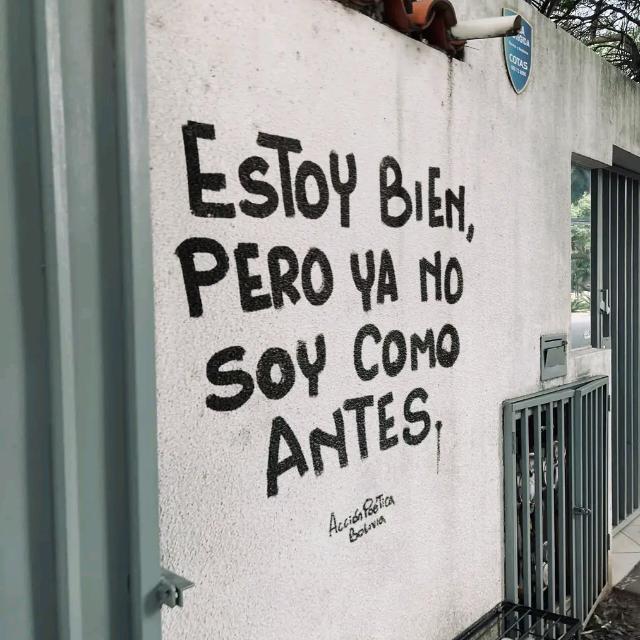 ESTOY BIEN,
PERO YA NO
SOY COMO
ANTES.
Acción Poética
Bolivia
COTAS